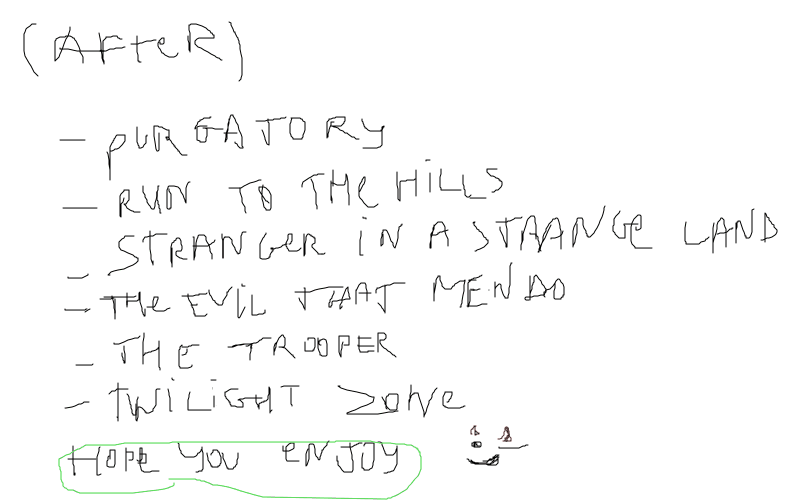 (AFteR)
- PURGATORY
- RUN TO THE HiLLS
- STRANGeR iN A STRANGe LAND
- THe EViL THAT MEN DO
- THE TROOPER
- tWiLiGHT ZONe
HOPe YOU eNJOY